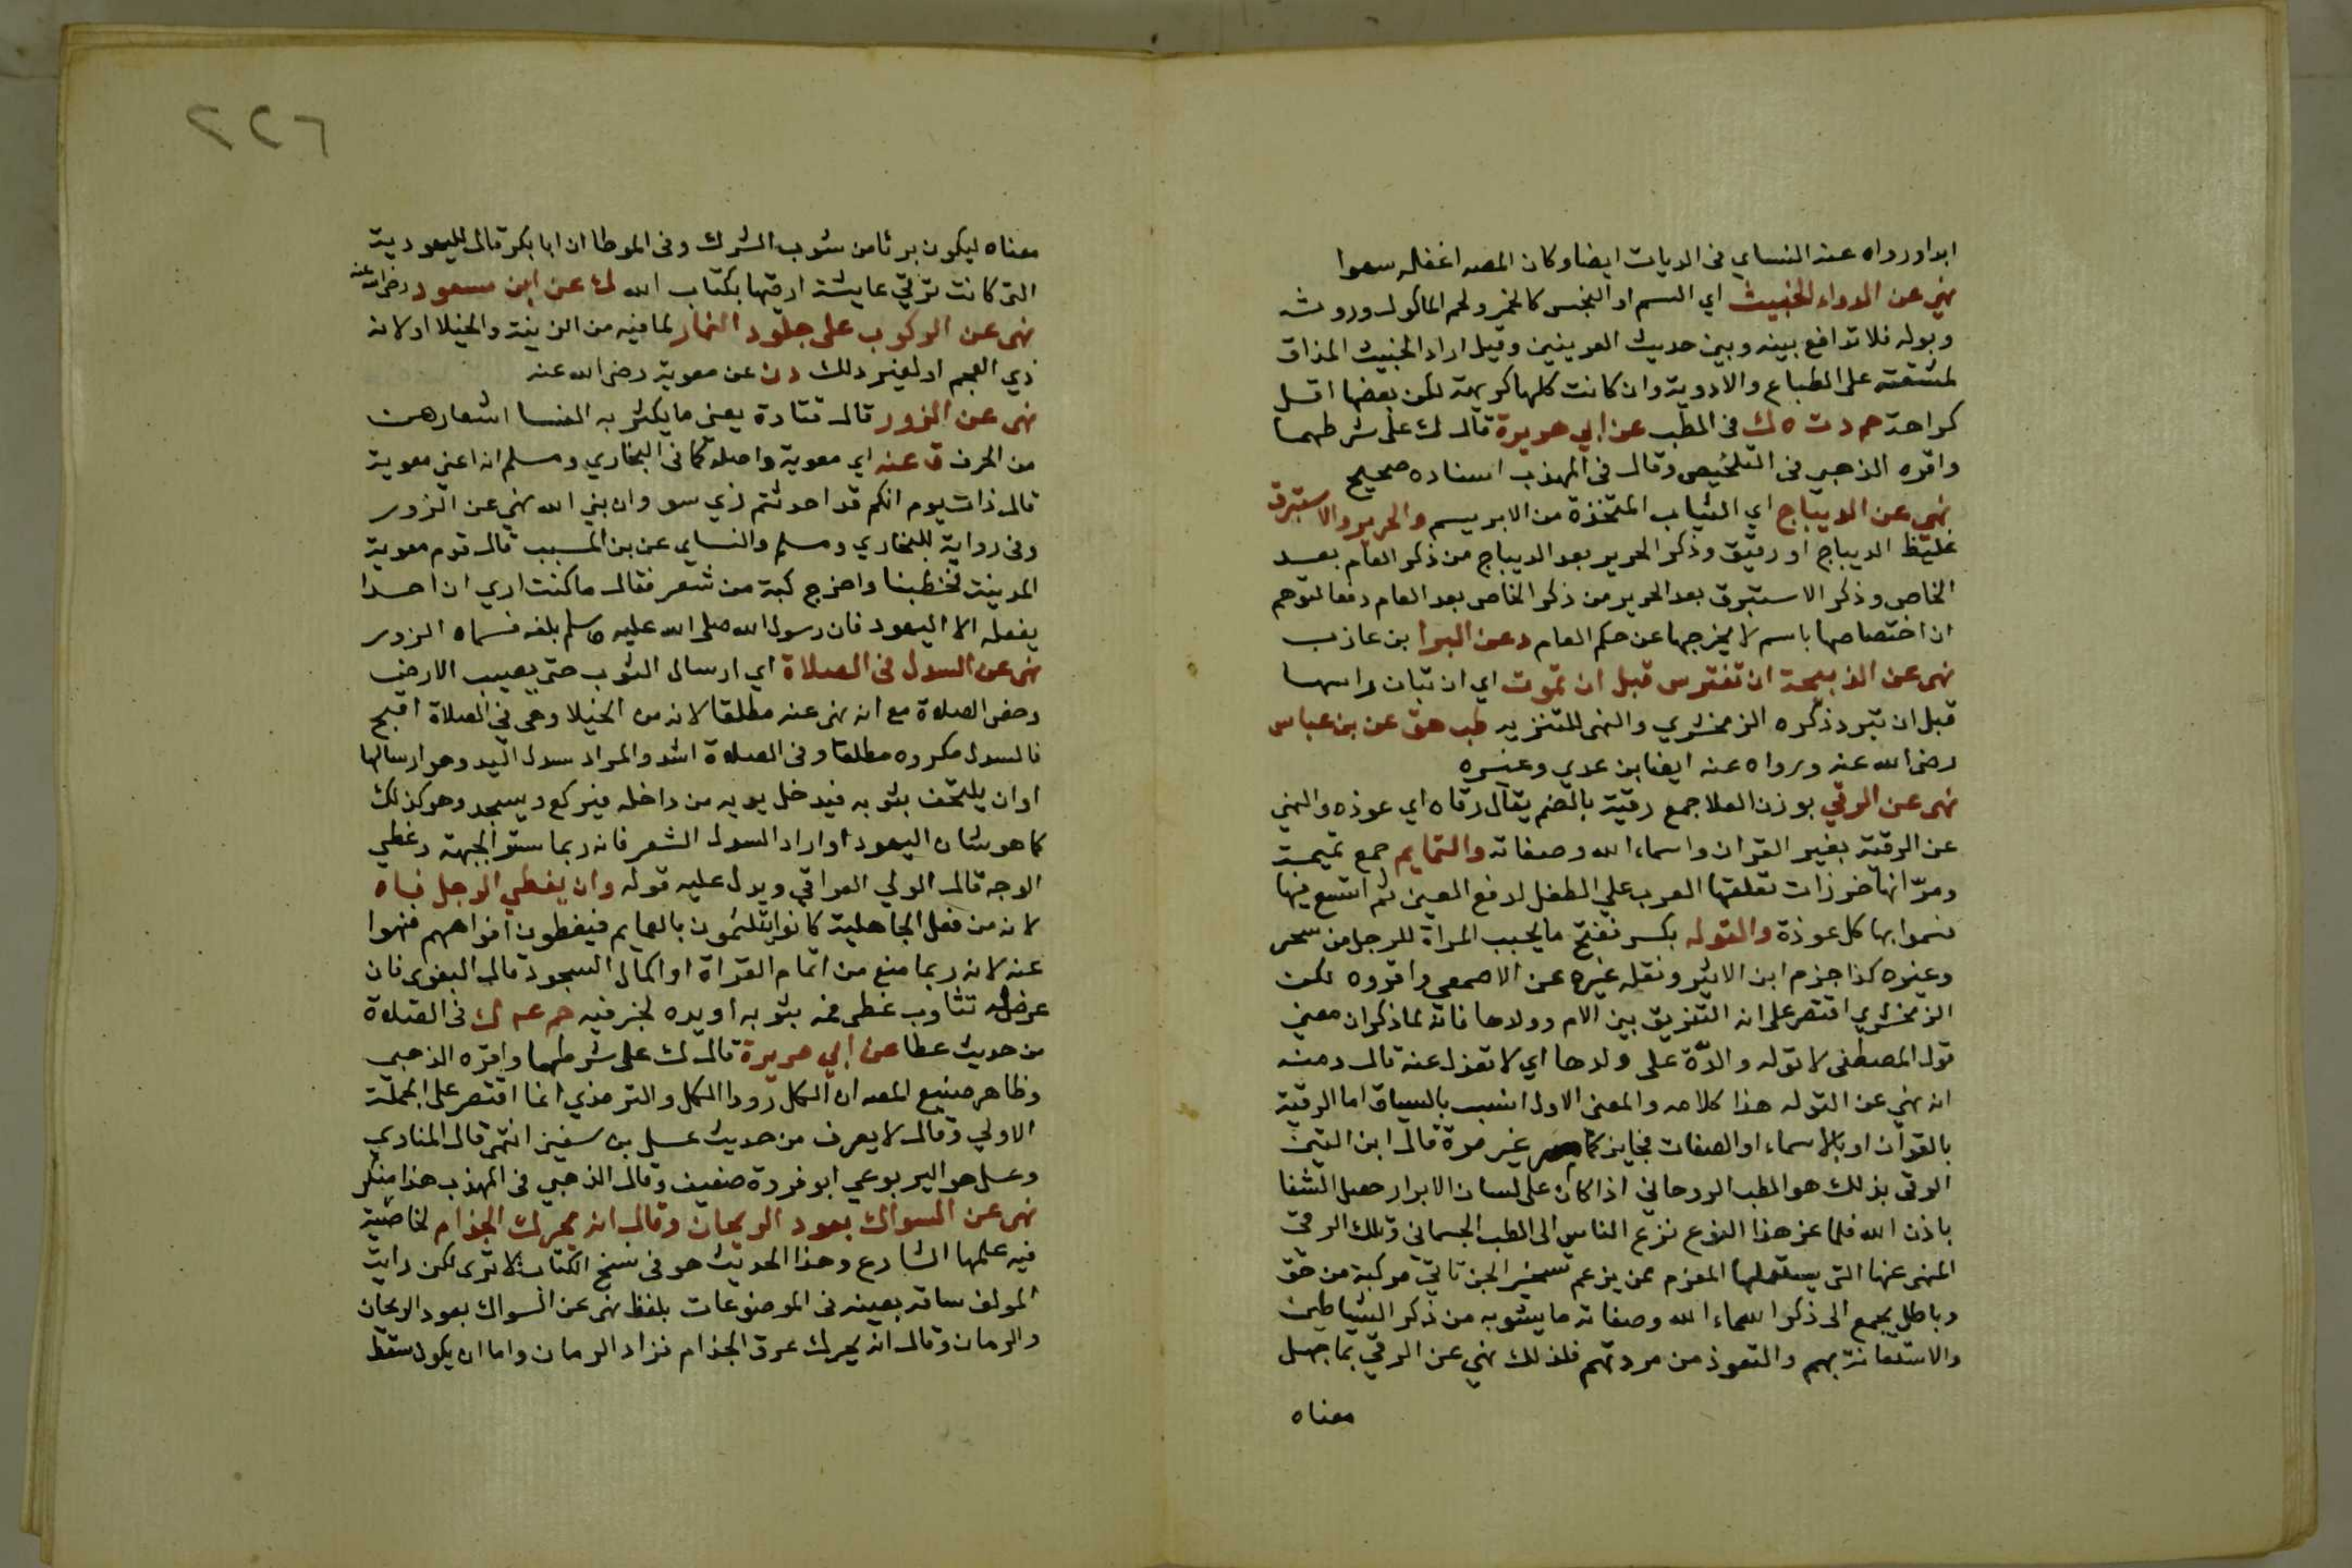 ابداورواه عنه النساي فى الديات ايضا وكان المصـ اغفله سهوا
نهي عن الدواء الخبيث اي السم او النجس كالخمر ولحم الماكول وروثه
وبوله فلا تدافع بينه وبين حديث العرينين وقيل اراد الخبيث المذاق
لمشقته على الطباع والادوية وان كانت كلها كريهة لكن بعضها اقل
كراهة حم د ت ه ك فى الطب عن ابي هريرة قال ك على شرطهما
واقره الذهبي فى التلخيص وقال فى المهذب اسناده صحيح
نهي عن الديباج اي الثياب المتخذة من الابريسم والحرير والاستبرق
غليظ الديباج او رقيق وذكر الحرير بعد الديباج من ذكر العام بعد
الخاص وذكر الاستبرق بعد الحرير من ذكر الخاص بعد العام دفعا لتوهم
ان اختصاصها باسم لا يخرجها عن حكم العام ه عن البرا بن عازب
نهى عن الذبيحة ان تفترس قبل ان تموت اي ان تبان راسها
قبل ان تبرد ذكره الزمخشري والنهى للتنزيه طب هق عن بن عباس
رضى الله عنه ورواه عنه ايضا بن عدي وغيره
نهى عن الرقي بوزن العلا جمع رقية بالضم يقال رقاه اي عوذه والنهي
عن الرقية بغير القران واسماء الله وصفاته والتمايم جمع تميمة
ومرّ انها خرزات تعلقها العرب على الطفل لدفع العين ثم اتسع فيها
فسموا بها كل عوذة والتوله بكسر ففتح ما يحبب المراة للرجل من سحر
وغيره كذا جزم ابن الاثير ونقله غيره عن الاصمعي واقروه لكن
الزمخشري اقتصر على انه التفريق بين الام وولدها فانه لما ذكر ان معني
قول المصطفى لا توله والدة على ولدها اي لا تعزل عنه قال ومنه
انه نهي عن التوله هذا كلامه والمعنى الاول انسب بالسياق اما الرقية
بالقران او بالاسماء او الصفات فجايز كما مر غير مرة قال ابن التين
الرقى بذلك هو الطب الروحاني اذا كان على لسان الابرار حصل الشفا
باذن الله فلما عز هذا النوع نزع الناس الى الطب الجسمانى وتلك الرقى
المنهى عنها التى يستعملها المعزم ممن يزعم تسخير الجن تاتى مركبة من حق
وباطل يجمع الى ذكر اسماء الله وصفاته ما يشوبه من ذكر الشياطين
والاستعانة بهم والتعوذ من مردتهم فلذلك نهي عن الرقى بما جهل
معناه
٢٢٦
معناه ليكون بريا من شوب الشرك وفى الموطا ان ابا بكر قال لليهودية
التى كانت ترقي عايشة ارقيها بكتاب الله ك عن ابن مسعود رضى الله عنه
نهى عن الركوب على جلود النمار لما فيه من الزينة والخيلا او لانه
زي العجم او لغير ذلك د ن عن معوية رضى الله عنه
نهى عن الزور قال قتادة يعنى ما يكثر به النسا اشعارهن
من الخرق ن عنه اي معوية واصله كما فى البخاري ومسلم انه اعني معوية
قال ذات يوم انكم قد احدثتم زي سو وان نبي الله نهي عن الزور
وفى رواية للبخاري ومسلم والنساي عن بن المسيب قال قدم معوية
المدينة فخطبنا واخرج كبة من شعر فقال ما كنت اري ان احدا
يفعله الا اليهود فان رسول الله صلى الله عليه وسلم بلغه فسماه الزور
نهى عن السدل فى الصلاة اي ارسال الثوب حتى يصيب الارض
وخص الصلاة مع انه نهى عنه مطلقا لانه من الخيلا وهى فى الصلاة اقبح
فالسدل مكروه مطلقا وفى الصلاة اشد والمراد سدل اليد وهو ارسالها
او ان يلتحف بثوبه فيدخل يديه من داخله فيركع ويسجد وهو كذلك
كما هو شان اليهود او اراد السدل الشعر فانه ربما ستر الجبهة وغطي
الوجه قال الولي العراقي ويدل عليه قوله وان يغطي الرجل فاه
لانه من فعل الجاهلية كانوا يتلثمون بالعمايم فيغطون افواههم فنهوا
عنه لانه ربما منع من اتمام القراة او اكمال السجود قال البغوى فان
عرض له تثاوب غطى فمه بثوبه او يده لخبر فيه حم عه ك فى الصلاة
من حديث عطا عن ابي هريرة قال ك على شرطهما واقره الذهبي
وظاهر صنيع المصـ ان الكل رووا الكل والترمذي انما اقتصر على الجملة
الاولي وقال لا يعرف من حديث عسل بن سفين انتهى قال المناوي
وعسل هو اليربوعي ابو قرة ضعيف وقال الذهبي فى المهذب هذا منكر
نهى عن السواك بعود الريحان وقال انه يحرك الجذام لخاصية
فيه علمها الشارع وهذا الحديث هو فى نسخ الكتاب كما ترى لكن رايت
المولف ساقه بعينه فى الموضوعات بلفظ نهى عن السواك بعود الريحان
والرمان وقال انه يحرك عرق الجذام فزاد الرمان واما ان يكون سقط